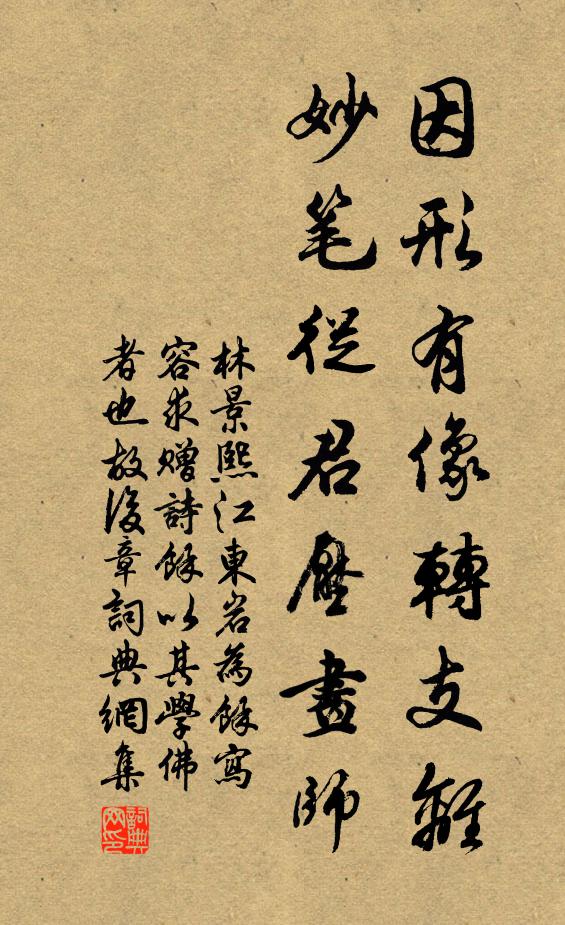 因形有像轉支離
妙笔從君壓畫師
林景熙江東岩為餘寫
容求贈詩餘以其學佛
者也故後章詞典網集
詞典
网印